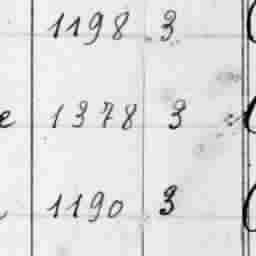 1198 3
e 1378 3
1190 3